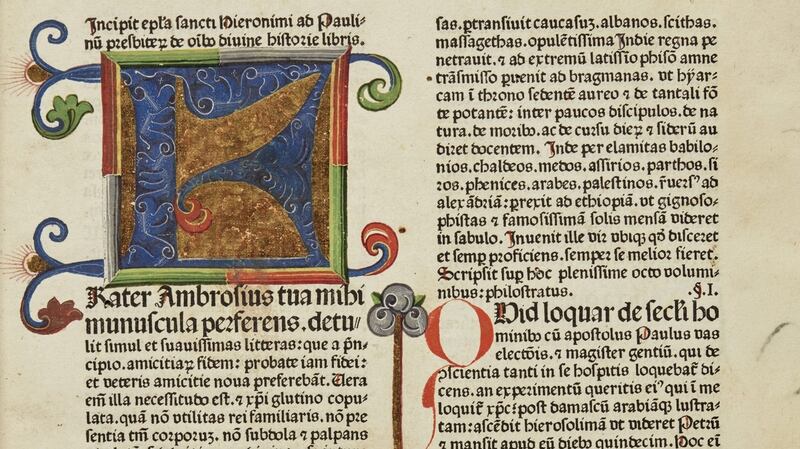 Incipit epl̃a sancti Hieronimi ad Pauli-
nũ presbiteꝝ de oĩbꝰ divine historie libris.
F
Rater Ambrosius tua mihi
munuscula perferens. detu-
lit simul et suavissimas litteras: que a pñ-
cipio. amicitiaꝝ fidem: probate iam fidei:
et veteris amicitie noua preferebãt. Uera
em̃ illa necessitudo est. ⁊ xp̃i glutino copu-
lata. quã nõ vtilitas rei familiaris. nõ pre-
sentia tm̃ corporuꝫ. nõ subdola ⁊ palpans
sas. ꝑtransiuit caucasuꝫ. albanos. scithas.
massagethas. opulẽtissima Indie regna pe
netrauit. ⁊ ad extremũ latissĩo phisõ amne
trãsmisso ꝑuenit ad bragmanas. vt hỹar-
cam ĩ throno sedentẽ aureo ⁊ de tantali fõ
te potantẽ: inter paucos discipulos. de na
tura. de moribꝰ. ac de cursu dieꝝ ⁊ siderũ au
diret docentem. Inde per elamitas babilo-
nios. chaldeos. medos. assirios. parthos. si
ros. phenices. arabes. palestinos. r̃uersꝰ ad
alexãdriã: ꝑrexit ad ethiopiã. vt gignoso-
phistas ⁊ famosissimã solis mensã videret
in sabulo. Inuenit ille vir vbiqꝫ qd̃ disceret
et semꝑ proficiens. semper se melior fieret.
Scripsit suꝑ hoc plenissime octo volumi-
nibus: philostratus. §.I.
Quid loquar de secl̃i ho
minibꝰ cũ apostolus Paulus vas
electõis. ⁊ magister gentiũ. qui de
ꝯscientia tanti in se hospitis loquebat̃ di
cens. an experimentũ queritis eiꝰ qui ĩ me
loquit̃ xp̃c: post damascũ arabiãqꝫ lustra-
tam: ascẽdit hierosolimã vt videret Petrũ
⁊ mansit apud eũ diebꝰ quindecim. Hoc em̃